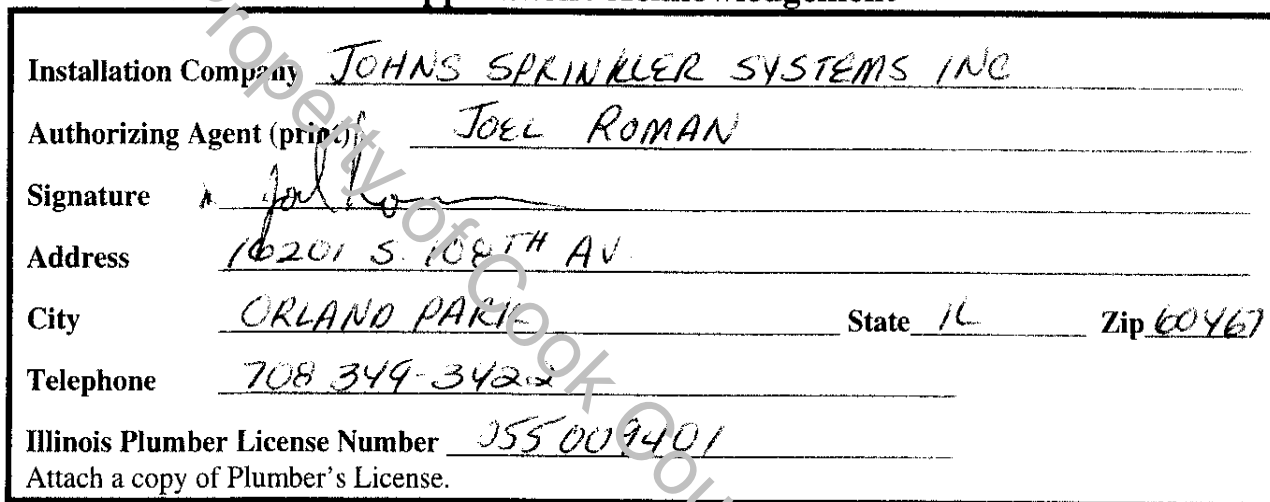 Installation Company JOHNS SPRINKLER SYSTEMS INC
Authorizing Agent (print) JOEL ROMAN
Signature
Address 16201 S. 108TH AV.
City ORLAND PARK State IL Zip 60467
Telephone 708 349-3422
Illinois Plumber License Number 055 009401
Attach a copy of Plumber's License.
Property of Cook Cou